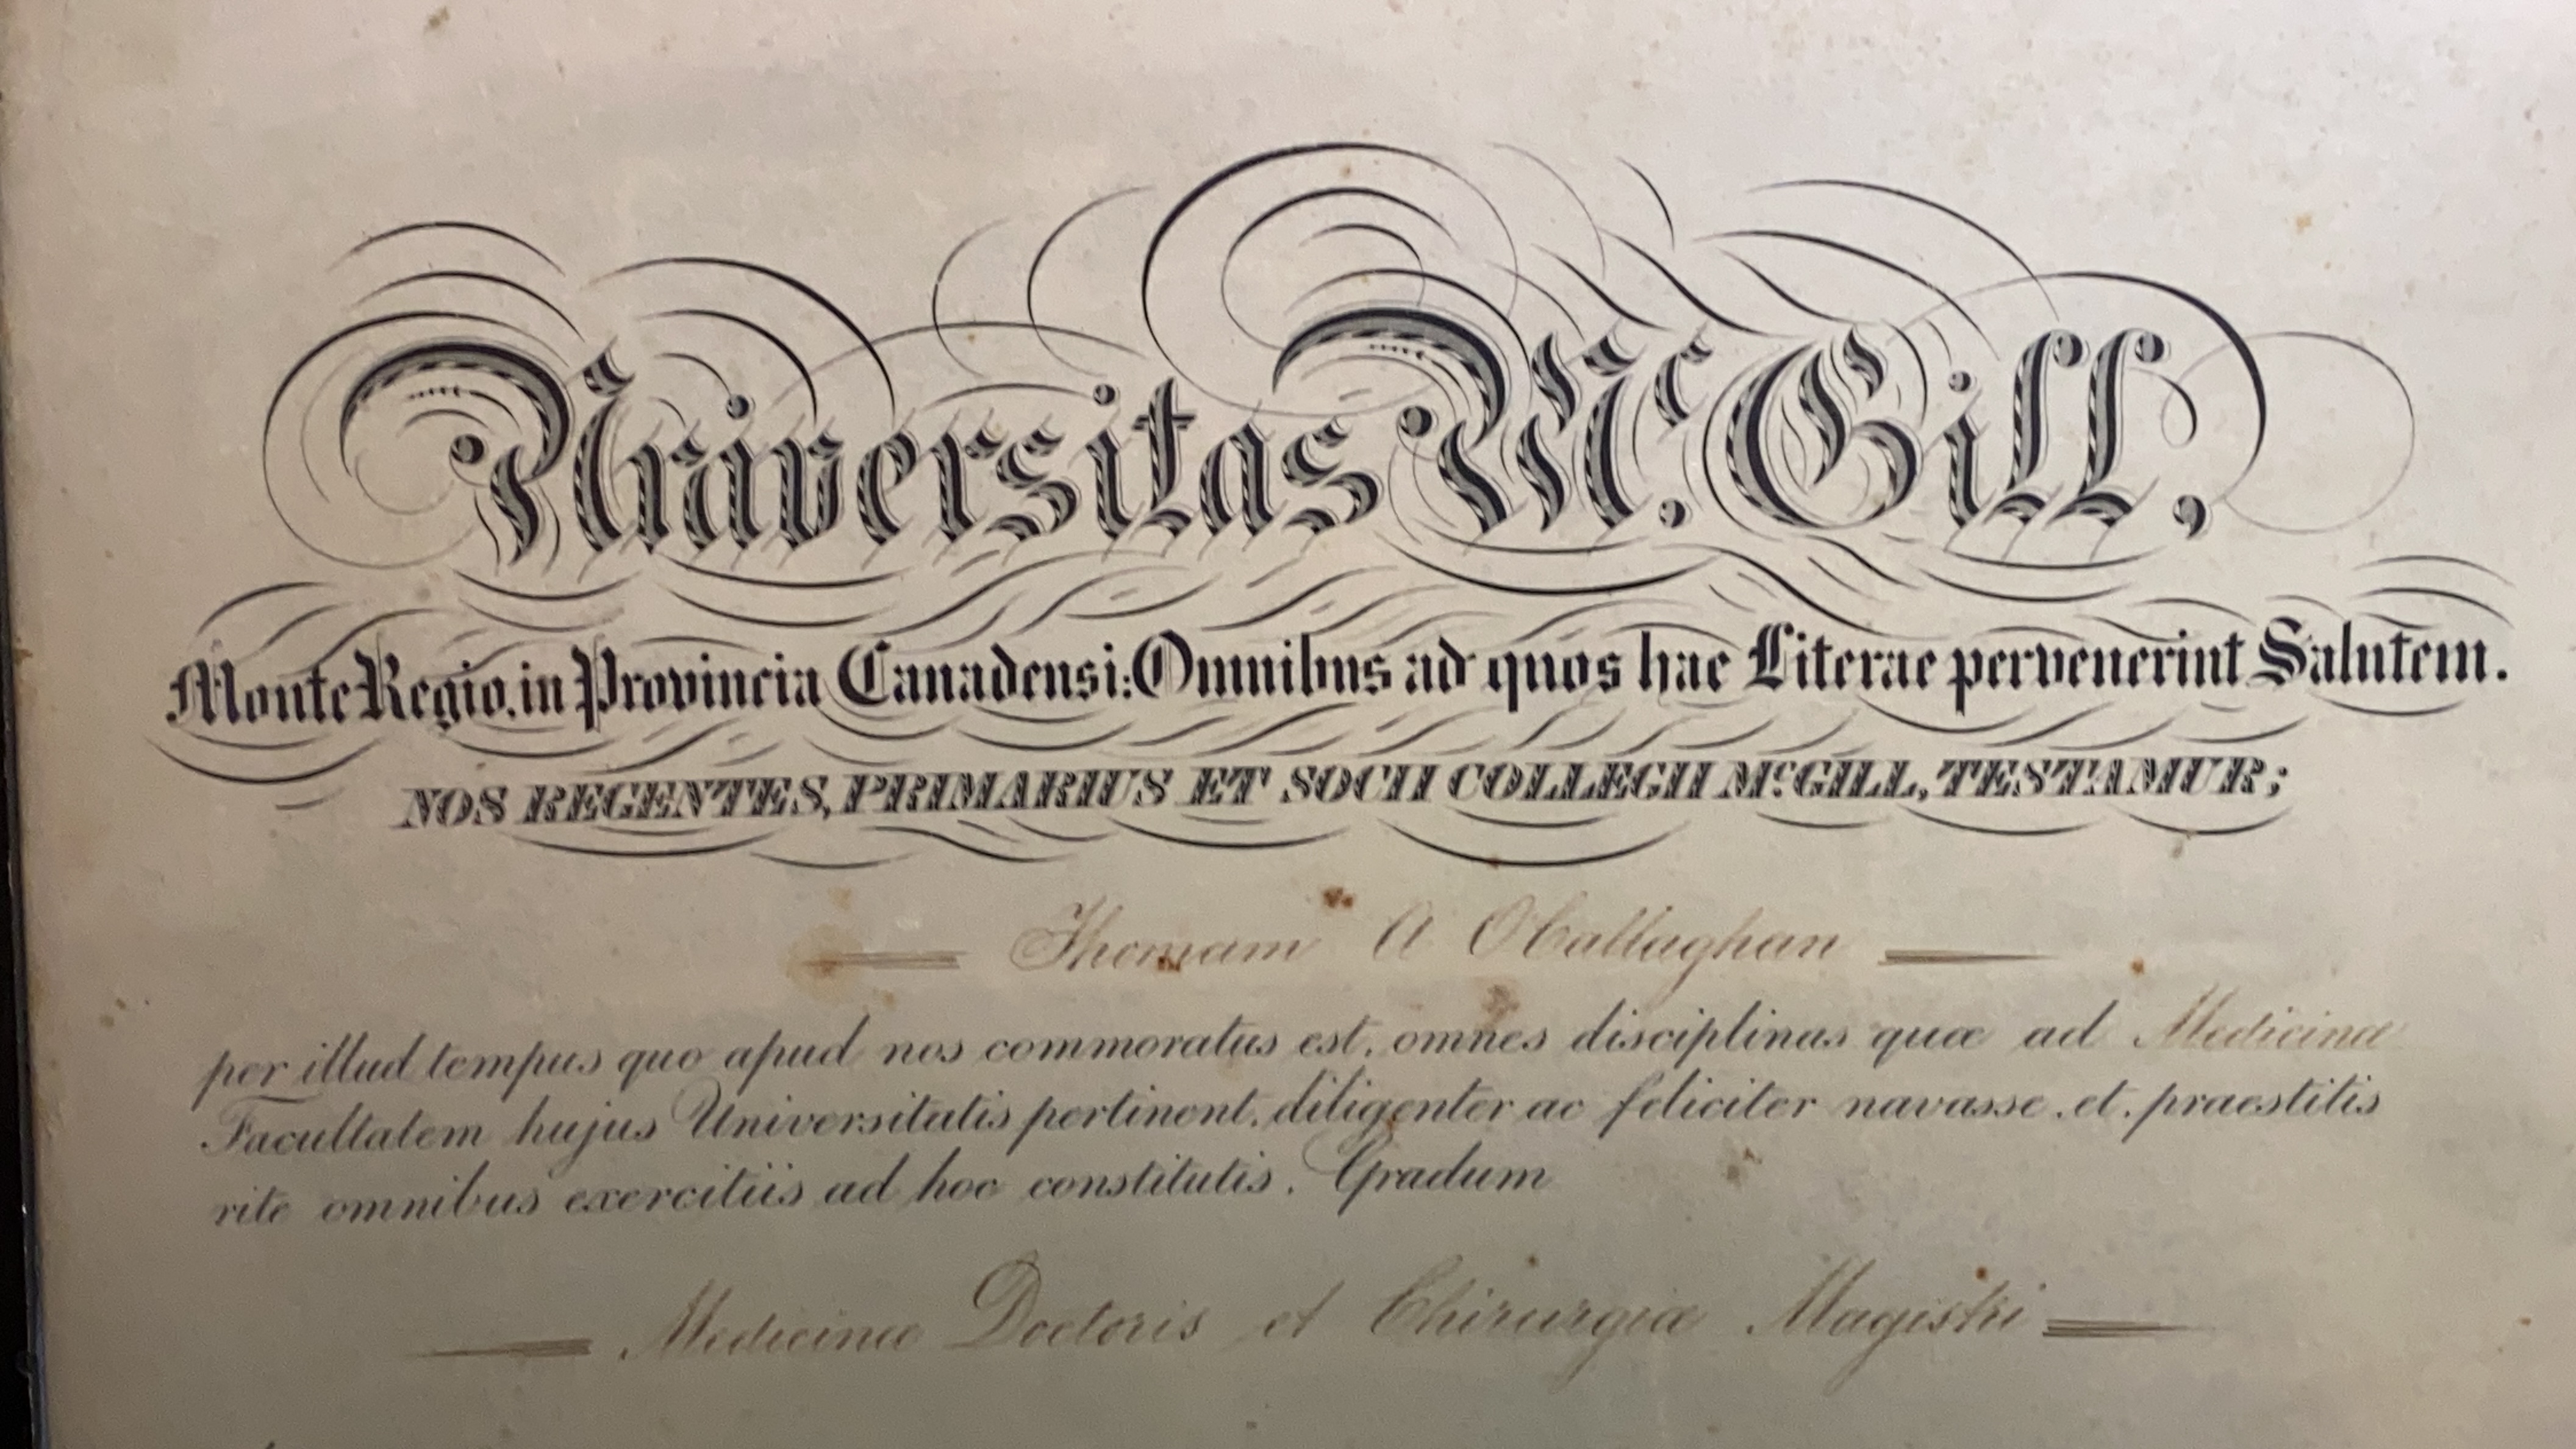 Universitas Mc. Gill,
Monte Regio, in Provincia Canadensi: Omnibus ad quos hae Literae pervenerint Salutem.
NOS REGENTES, PRIMARIUS ET SOCII COLLEGII Mc. GILL, TESTAMUR;
Thomam A OCallaghan
per illud tempus quo apud nos commoratus est, omnes disciplinas quæ ad Medicinæ
Facultatem hujus Universitatis pertinent, diligenter ac feliciter navasse, et, praestitis
rite omnibus exercitiis ad hoc constitutis, Gradum
Medicinæ Doctoris et Chirurgiæ Magistri